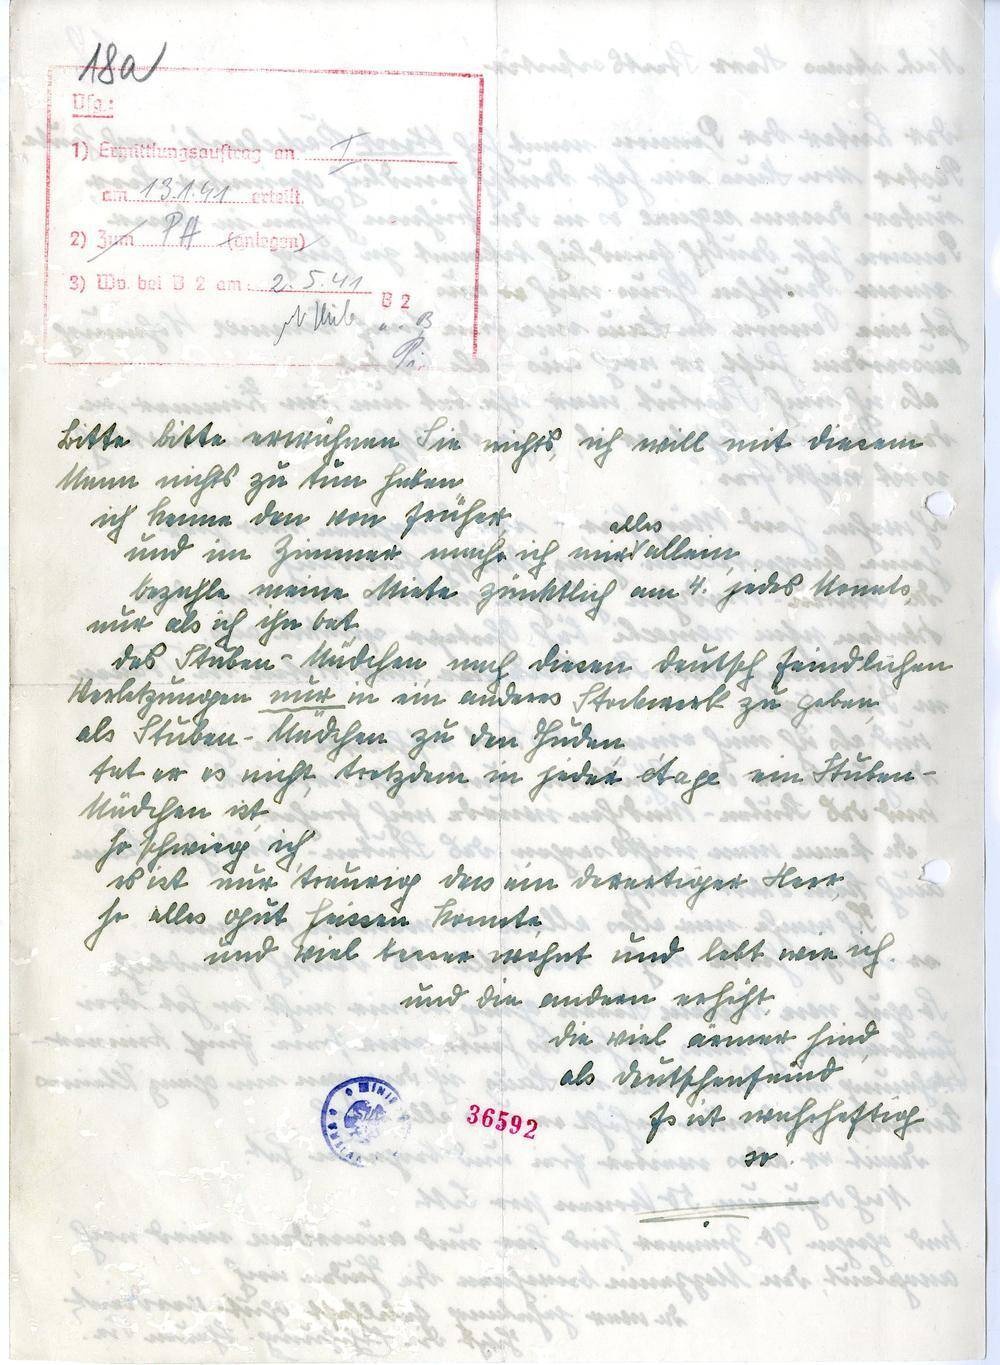 18a
Vfg.:
1) Ermittlungsauftrag an I
am 13.1.41 erteilt.
2) Zum PA (anlegen)
3) Wv. bei B 2 am: 2.5.41
B 2
Bitte bitte erwähnen Sie nichts, ich will mit diesem
Mann nichts zu tun haben
ich kenne den von früher
alles
und im Zimmer mache ich mir allein,
bezahle meine Miete pünktlich am 4. jedes Monats,
nur als ich ihn bat
das Stuben-Mädchen, nach diesen deutsch feindlichen
Verletzungen nur in ein anderes Stockwerk zu geben,
als Stuben-Mädchen zu den Juden
tat er es nicht, trotzdem in jeder Etage ein Stuben-
Mädchen ist,
so schwieg ich,
es ist nur traurig das ein derartiger Herr,
so alles gut heissen konnte,
und viel besser wohnt und lebt wie ich.
und die andern erhöht,
die viel ärmer sind,
als deutschenfeind
Es ist wahrhaftig
so.
36592